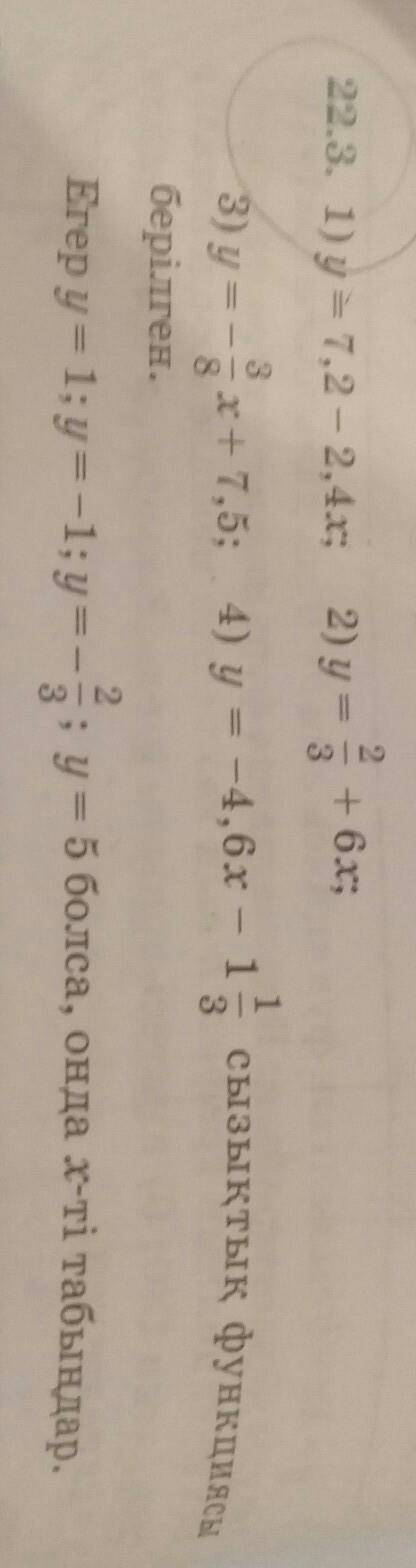 22.3. 1) y = 7,2 − 2,4x; 2) y = 2/3 + 6x;
3) y = −3/8 x + 7,5; 4) y = −4,6x − 1 1/3 сызықтық функциясы
берілген.
Егер y = 1; y = −1; y = −2/3; y = 5 болса, онда x-ті табыңдар.